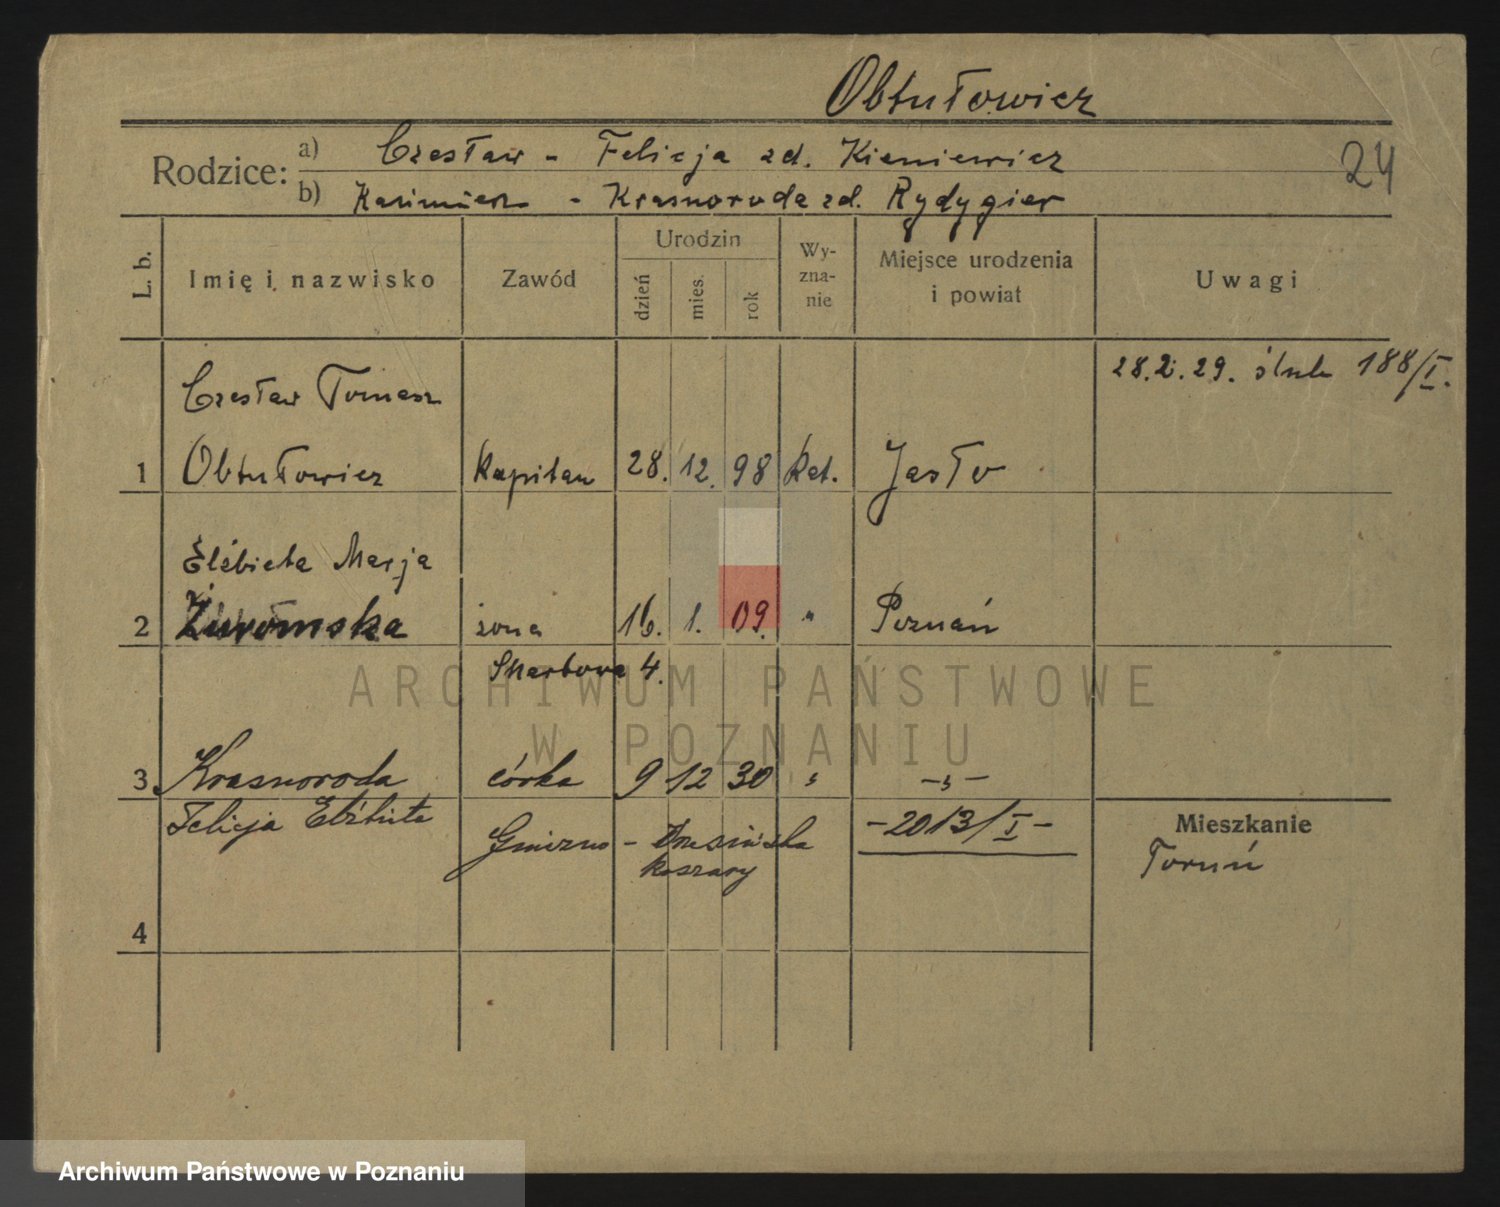 Obtułowicz
Rodzice: a) Czesław - Felicja zd. Kieniewicz 24
b) Kazimierz - Krasnoroda zd. Rydygier
L. b. Imię i nazwisko Zawód Urodzin dzień mies. rok Wyznanie Miejsce urodzenia i powiat Uwagi
28.2.29. ślub 188/I.
Czesław Tomasz
1 Obtułowicz Kapitan 28. 12. 98 kat. Jasło
Elżbieta Marja
2 Żuromska żona 16. 1. 09. " Poznań
Skarbowa 4.
3 Krasnoroda córka 9 12 30 " -"-
Felicja Elżbieta
Gniezno - -2013/I-
koszary
Mieszkanie
Toruń
4
ARCHIWUM PAŃSTWOWE
W POZNANIU
Archiwum Państwowe w Poznaniu